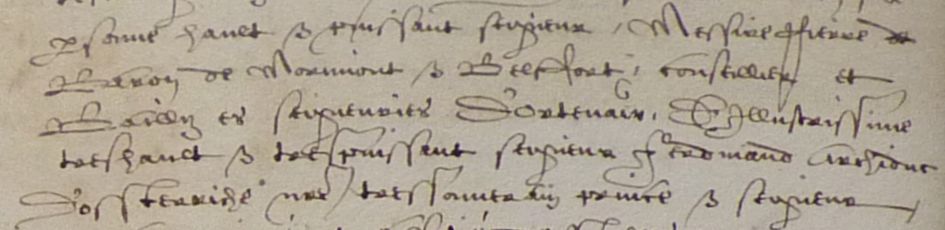 psonne hault & puissant seigneur, Messire Pierre de
Baron de Morimont & Belffort, conseillier et
Bailly es seigneuries Dortenaw, Dillustrissime
treshault & trespuissant seigneur Ferdinand Archiduc
Dossterriche nre tressouverain prince & seigneur